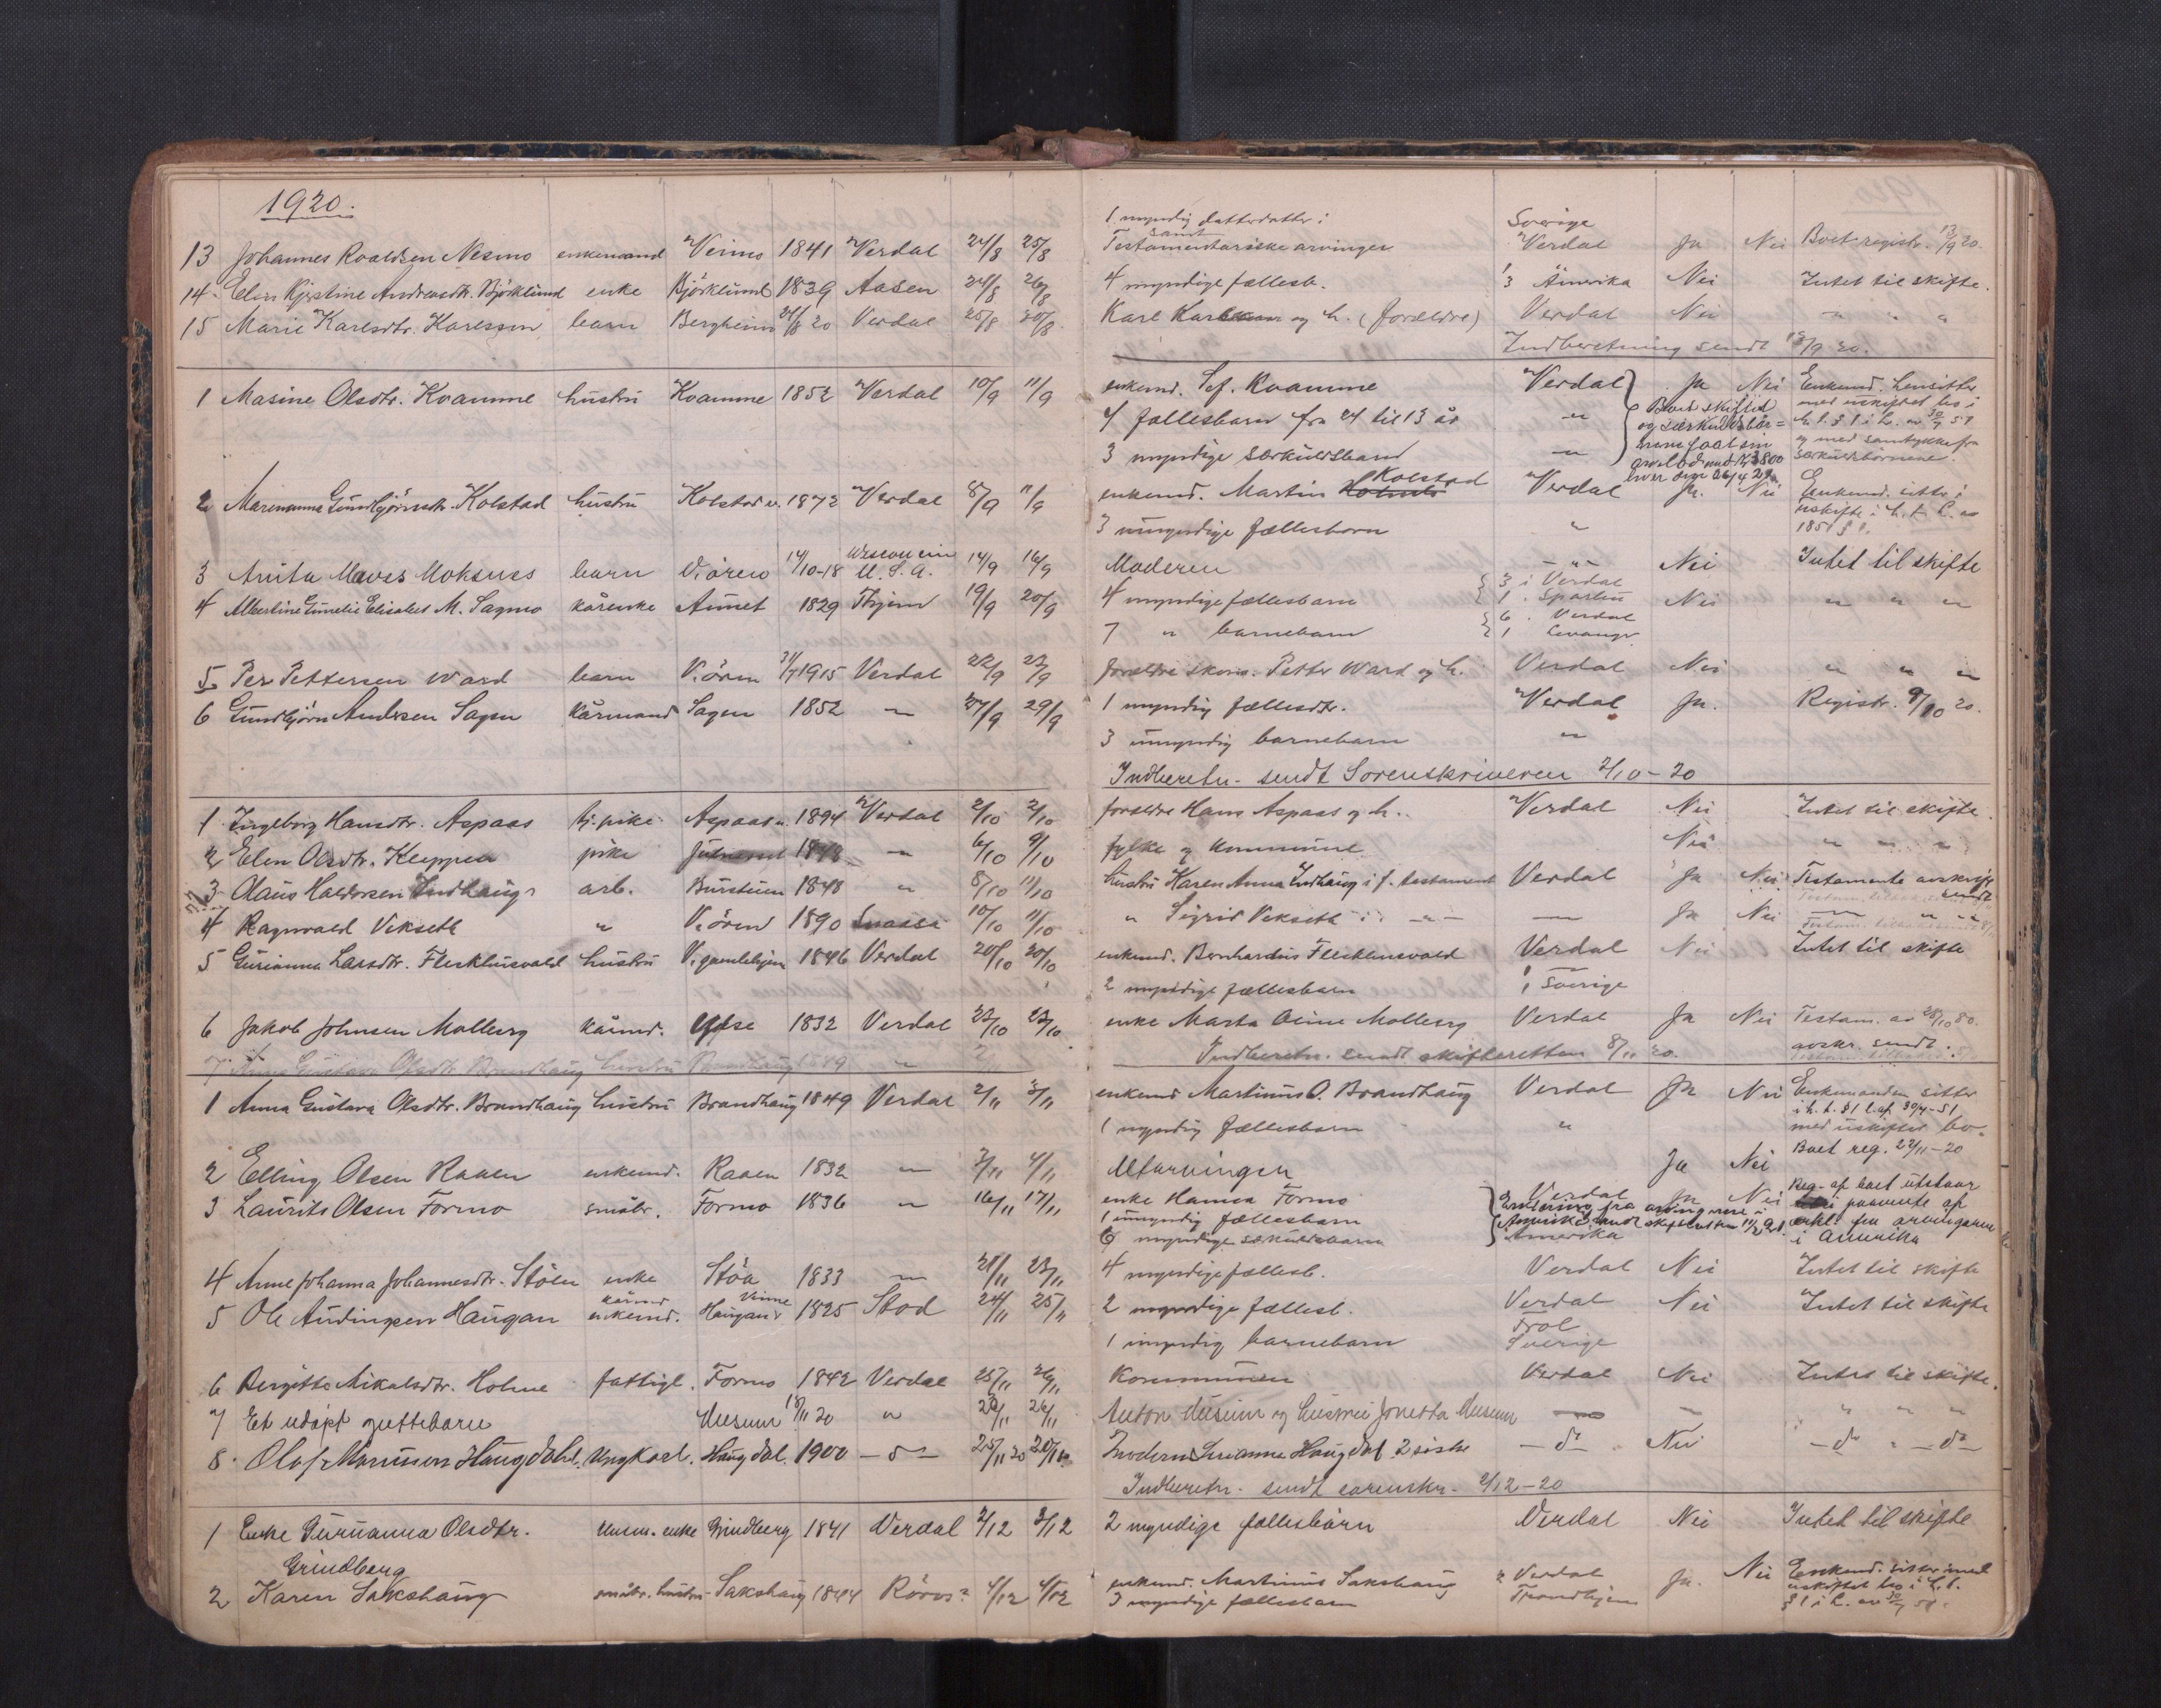 1920.
1 myndig datterdatter i Sverige
13 Johannes Roaldsen Nesmo enkemand Veimo 1841 Verdal 24/8 25/8 samt Testamentariske arvinger Verdal Ja Nei Boet registr. 13/9 20.
14 Elen Kjerstine Andreasdtr. Björklund enke Björklund 1839 Aasen 24/8 26/8 4 myndige fællesb. 3 Amerika Nei Intet til skifte.
15 Marie Karlsdtr. Karlsson barn Bergheim 21/8 20 Verdal 25/8 Karl og h. (forældre) Verdal Nei " " "
Indberetning sendt /9 20.
1 Masine Olsdtr. Kvamme hustru Kvamme 1852 Verdal 10/9 11/9 enkemd. Sef. Kvamme Verdal Ja Nei Enkemd. hensitter
med uskiftet bo i
4 fællesbarn fra 24 til 13 år " Boet skiftet h. t. § 1 i L. av 30/7 51
og særkuldsbör= og med samtykke fra
3 myndige særkuldsbarn " nene faat sin særkuldsbörnene.
arvelod med Kr 3800
hver 26/4 21
2 Marenanna Gundbjörnsdtr. Kolstad hustru Kolstad v. 1872 Verdal 8/9 11/9 enkemd. Martin Kolstad Verdal Ja. Nei Enkemd. sitter i
uskifte i h. t. L. av
3 umyndige fællesbarn " 1851 § 1.
3 Anita Maves Moksnes barn V.ören 14/10-18 Wisconsin U.S.A. 14/9 16/9 Moderen - " - Nei Intet til skifte
4 Albertine Gunelie Elisabet M. Sagmo kårenke Aunet 1829 19/9 20/9 4 myndige fællesbarn 3 i Verdal Nei " " "
1 . Sparbu
7 " barnebarn 6 . Verdal
1 Levanger
5 Per Pettersen Ward barn V.ören 31/7 1915 Verdal 22/9 23/9 forældre skom. Petter Ward og h. Verdal Nei " " "
6 Gundbjörn Andersen Sagen kårmand Sagen 1852 " 27/9 29/9 1 myndig fællesdtr. Verdal Ja. Registr. 9/10 20.
3 umyndig barnebarn "
Indberetn. sendt Sorenskriveren 2/10-20
1 Ingeborg Hansdtr. Aspaas tj. pike Aspaas v. 1894 Verdal 2/10 2/10 forældre Hans Aspaas og h. Verdal Nei Intet til skifte.
2 Elen Olsdtr. Kleppen pike " 6/10 9/10 fylke og kommune Nei " " "
3 Olaus Haldorsen Indhaug arb. Burstuen 1848 " 8/10 11/10 hustru Karen Anna Indhaug i f. testament Verdal Ja Nei Testamente avskrift
sendt
4 Ragnvald Vekseth " V.ören 1890 Snaasa 10/10 11/10 " Sigrid Vekseth i - " - Ja Nei - " -
5 Gurianna Larsdtr. Flekkusvald hustru V. gamlehjem 1846 Verdal 20/10 20/10 enkemd. Bernhardus Flekkusvald Verdal Nei Intet til skifte
2 myndige fællesbarn 1 Sverige
6 Jakob Johnsen Molberg kårmd. 1832 Verdal 22/10 23/10 enke Marta Oline Molberg Verdal Ja Nei Testam. av 28/10 80.
Indberetn. sendt skifteretten 8/11 20. avskr. sendt.
7 Anna Gustava Olsdtr. Brandhaug hustru Brandhaug 1849 "
1 Anna Gustava Olsdtr. Brandhaug hustru Brandhaug 1849 Verdal 2/11 3/11 enkemd Martinus O. Brandhaug Verdal Ja Nei Enkemanden sitter
i h. t. § 1 l. af 30/7-51
1 myndig fællesbarn " med uskiftet bo.
2 Elling Olsen Raaen enkemd. Raaen 1832 " 3/11 4/11 Utarvingen Ja Nei Boet reg. 22/11-20
3 Laurits Olsen Formo småbr. Formo 1836 " 16/11 17/11 enke Hanna Formo Verdal Ja Nei Reg. af boet utstaar
1 umyndig fællesbarn Erklæring fra arvingerne i paavente af
6 myndige særkuldsbarn Amerika sendt skifteretten 11/2 21. erkl. fra arvingerne
Amerika i Amerika
4 Anne Johanna Johannesdtr. Stöen enke Stöa 1833 " 21/11 23/11 4 myndige fællesb. Verdal Nei Intet til skifte
5 Ole Audingsen Haugan kårmd enkemd. Haugan Vinne 1825 Stod 24/11 25/11 2 myndige fællesb. Verdal Nei Intet til skifte
Frol
1 umyndig barnebarn Sverige
6 Bergitte Mikalsdtr. Holme fattigl. Formo 1842 Verdal 25/11 26/11 Kommunen Verdal Nei Intet til skifte.
7 Et udöpt guttebarn Musum 18/11 20 " 23/11 26/11 Anton Musum og hustru Jonetta Musum " " " " "
8 Olaf Monsson Haugdahl. Ungkarl. Haugdal. 1900 - do - 25/11 20 Moderen Susanne Haugdal. 2 söske - do - Nei - do - - do -
Indberetn. sendt sorenskr. 2/12-20
1 Enke Guruanna Olsdtr. enke Grindberg 1841 Verdal 2/12 3/12 2 myndige fællesbörn Verdal Nei Intet til skifte
Grindberg
2 Karen Sakshaug småbr. hustru Sakshaug 1844 Röros? 4/12 4/12 enkemd. Martinus Sakshaug 2 Verdal Ja. Nei Enkemd. sitter med
3 myndige fællesbarn Trondhjem uskiftet bo i h. t.
§ 1 i L. av 30/7 51.